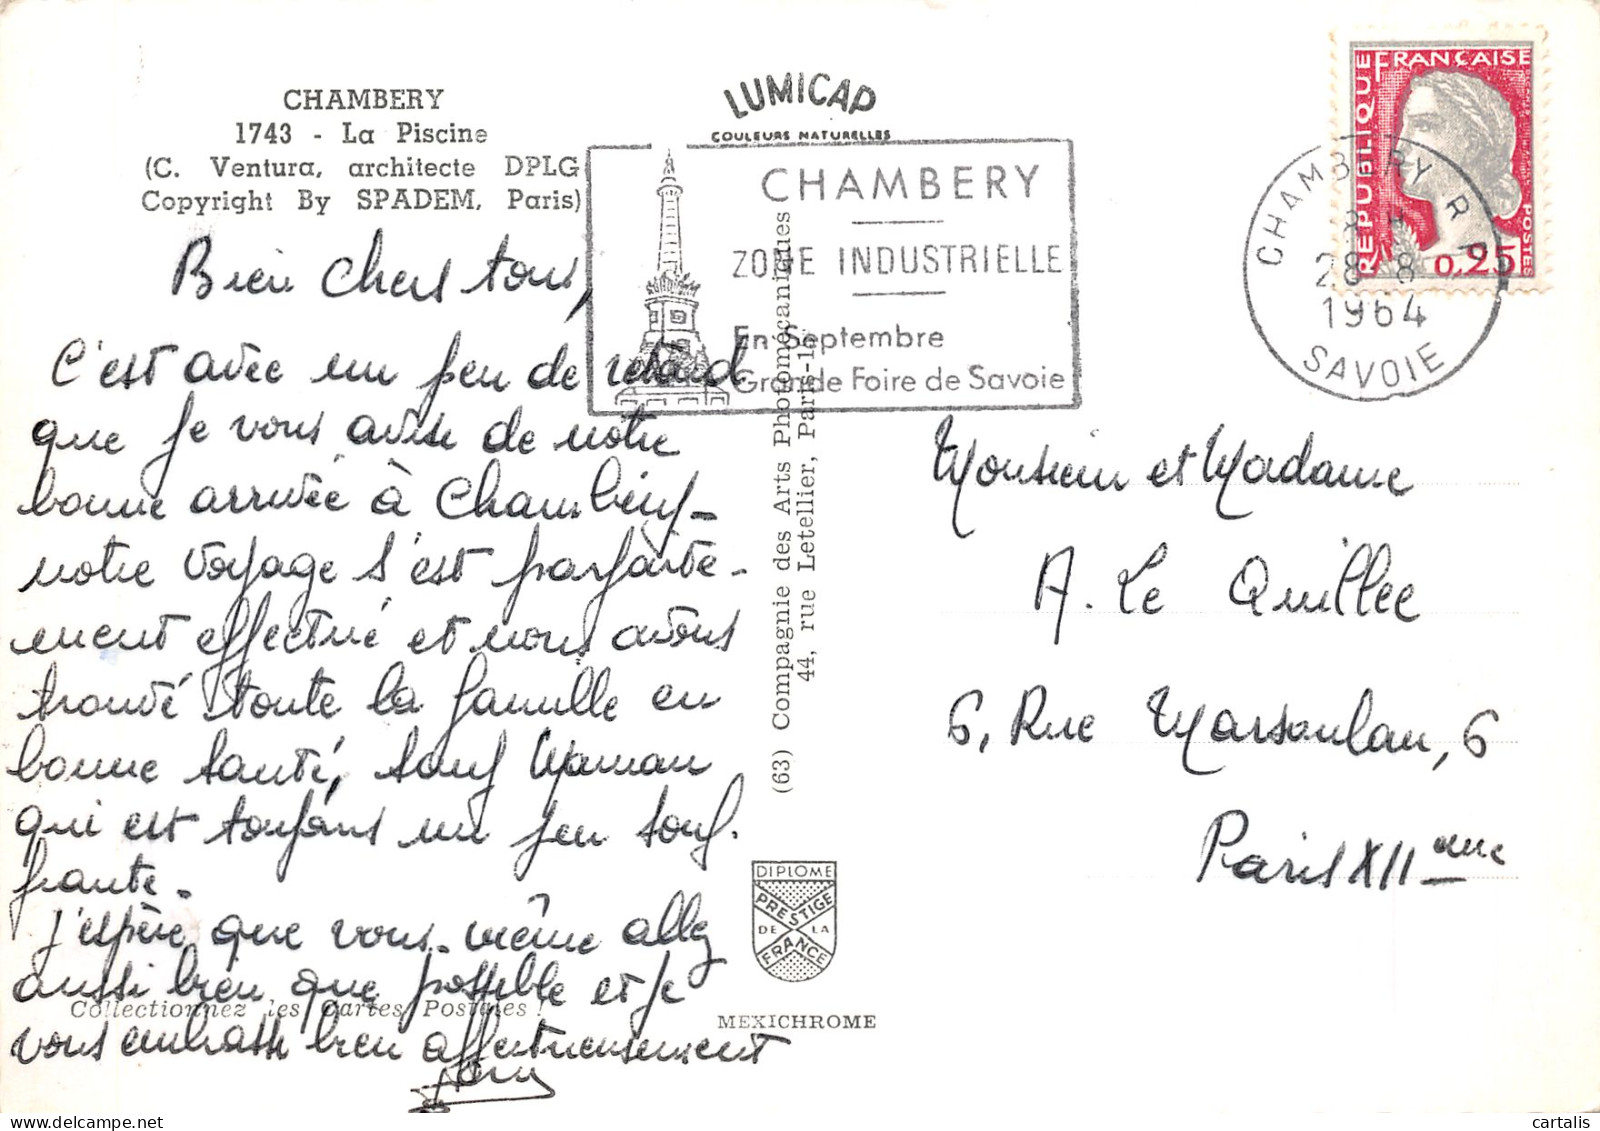 CHAMBERY
1743 - La Piscine
(C. Ventura, architecte DPLG
Copyright By SPADEM, Paris)
Bien chers tous,
C'est avec un peu de retard
que je vous avise de notre
bonne arrivée à Chambéry -
notre voyage s'est parfaite-
ment effectué et nous avons
trouvé toute la famille en
bonne santé, sauf Maman
qui est toujours un peu souf-
frante.
J'espère que vous-même allez
aussi bien que possible et je
vous embrasse bien affectueusement
Collectionnez les Cartes Postales !
LUMICAP
COULEURS NATURELLES
CHAMBERY
ZONE INDUSTRIELLE
En Septembre
Grande Foire de Savoie
(63) Compagnie des Arts Photomécaniques
44, rue Letellier, Paris-15
DIPLOME
PRESTIGE
DE LA
FRANCE
MEXICHROME
REPUBLIQUE FRANÇAISE
POSTES
0,25
CHAMBERY R P
28-8
1964
SAVOIE
Monsieur et Madame
A. Le Quillec
6, Rue Marsoulan, 6
Paris XII ème
cartalis delcampe.net